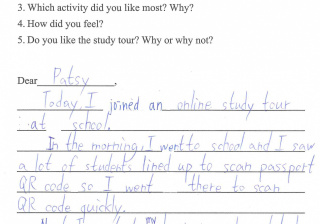 3. Which activity did you like most? Why?
4. How did you feel?
5. Do you like the study tour? Why or why not?
Dear Patsy,
Today, I joined an online study tour
at school.
In the morning, I went to school and I saw
a lot of students lined up to scan passport
QR code so I went there to scan
QR code quickly.